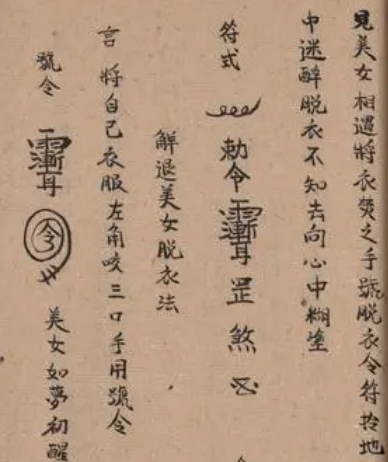 見美女相遇將衣熒之手號脫衣令符拎地
中迷醉脫衣不知去向心中糊塗
符式
勅令 罡煞
解退美女脫衣法
言將自己衣服左角咬三口手用號令
號令
令
美女如夢初醒